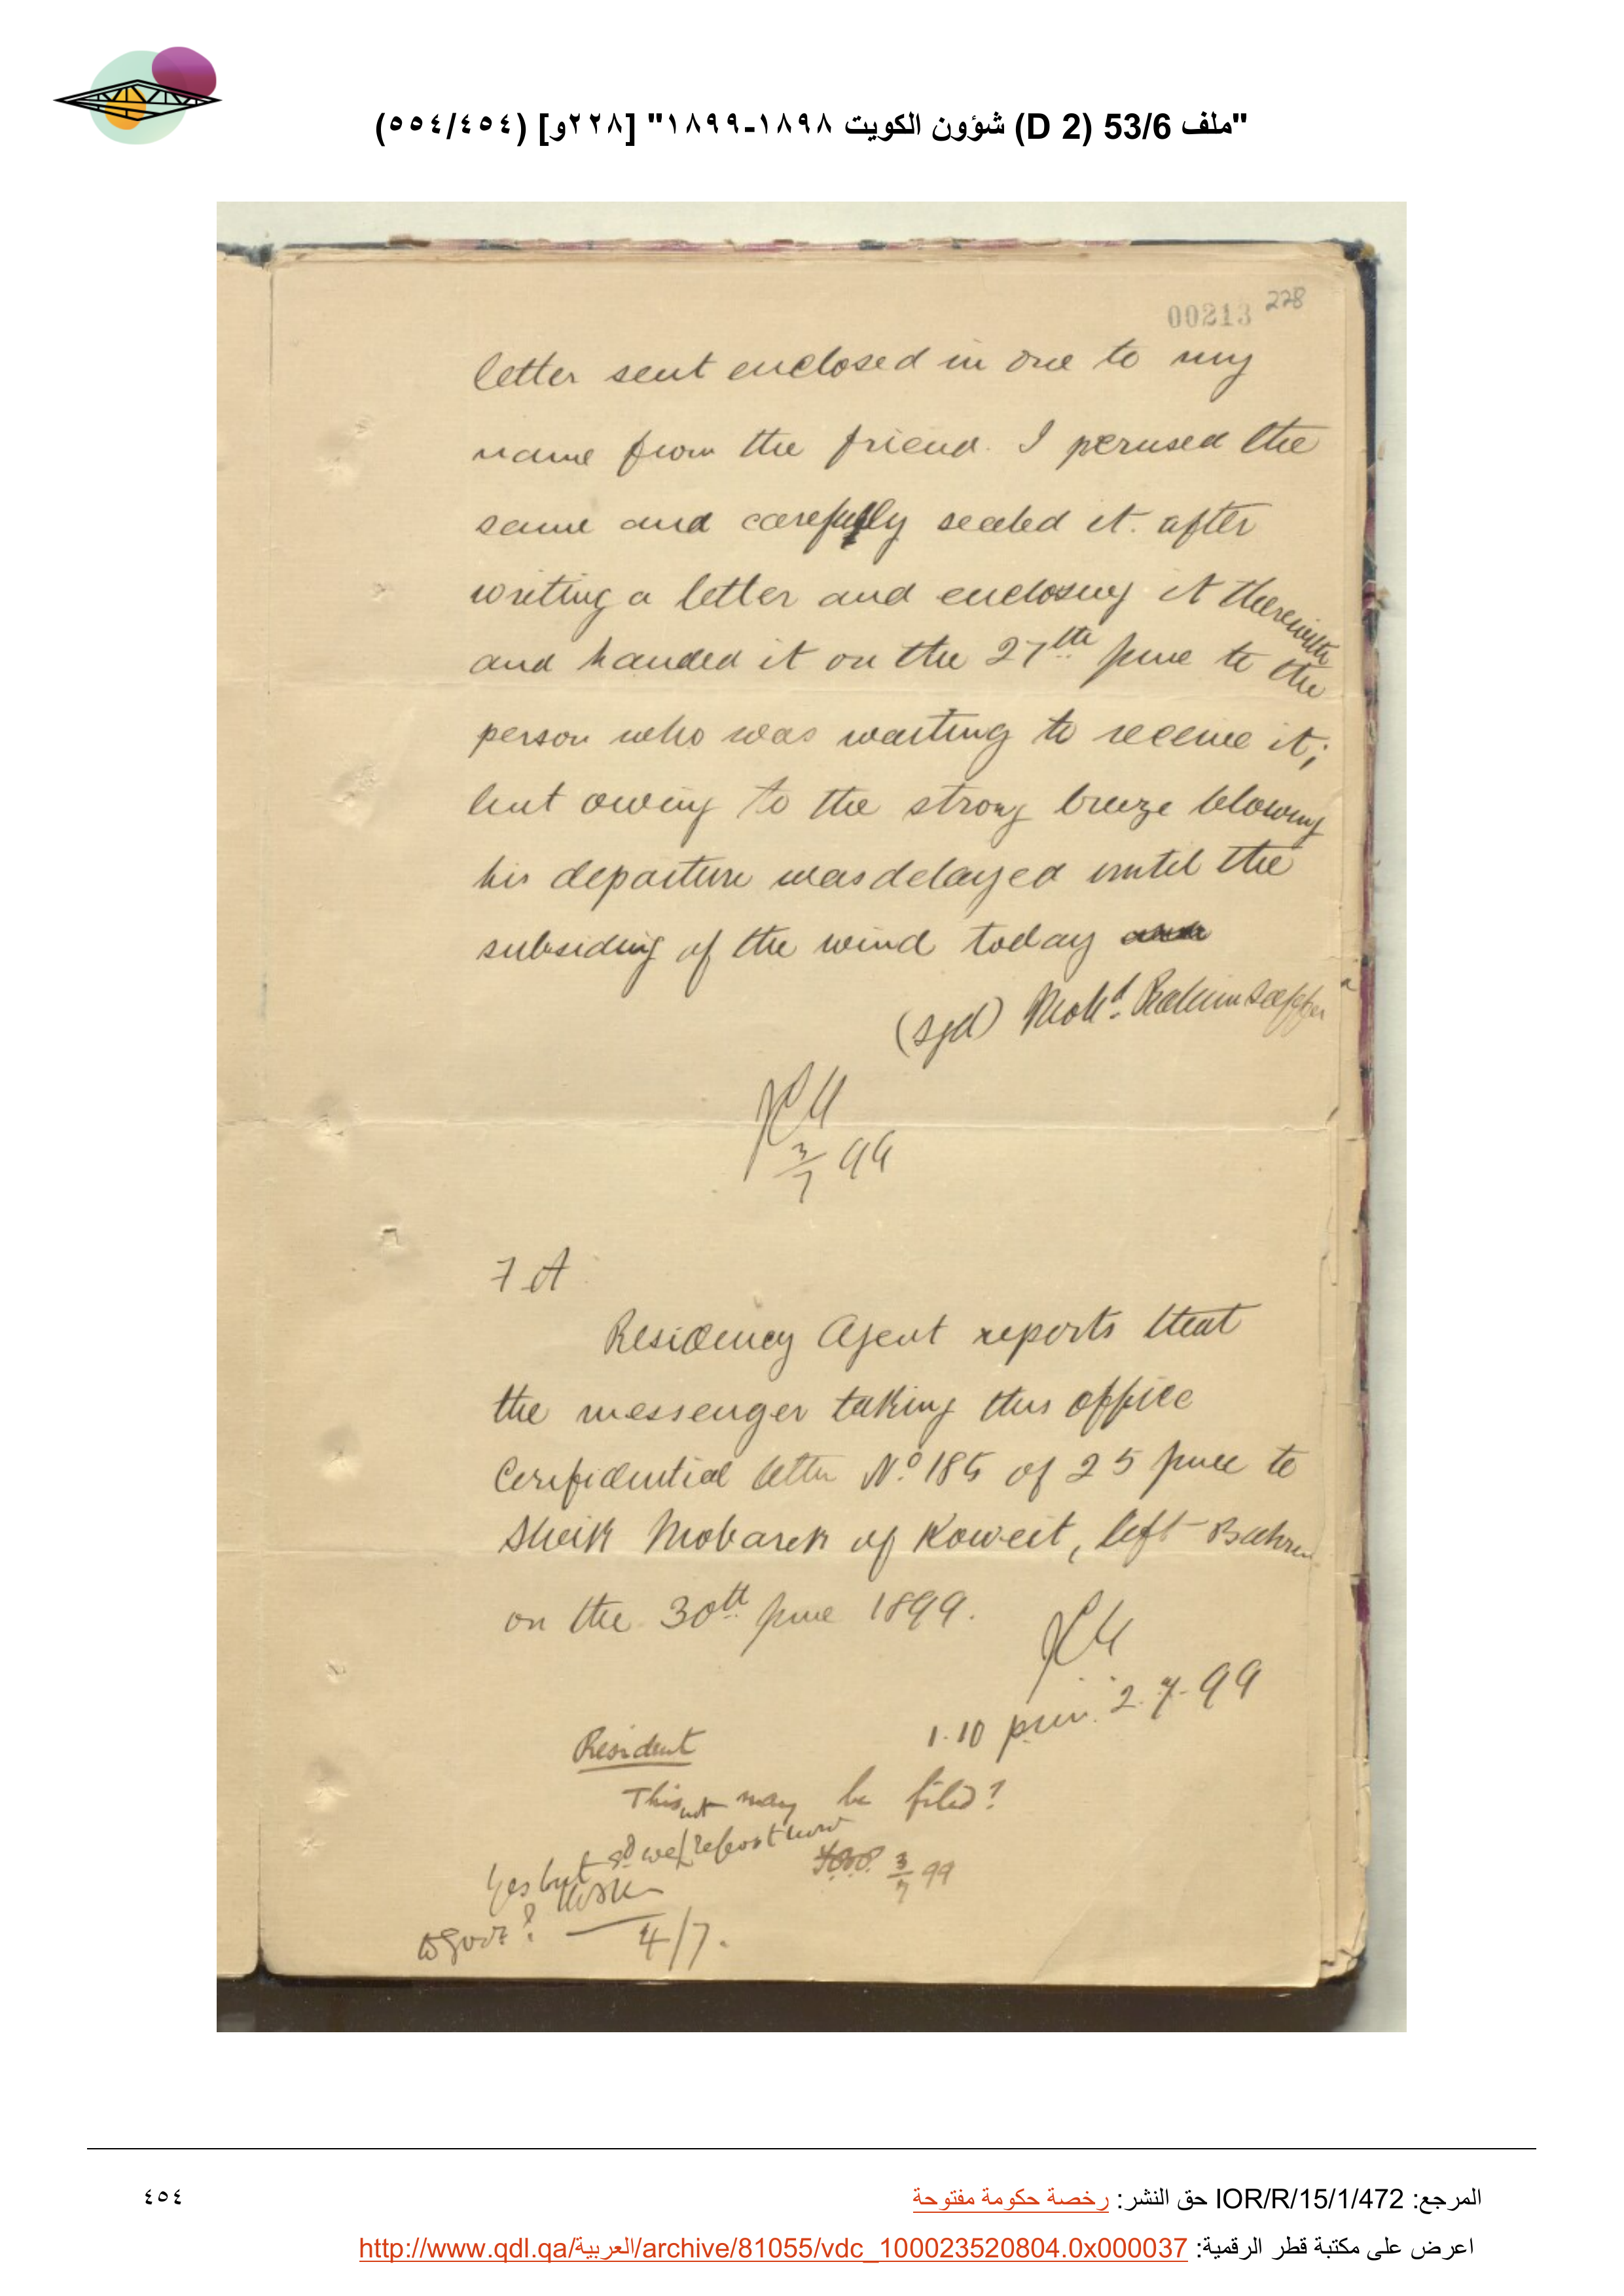 "ملف 53/6 (D 2) شؤون الكويت ١٨٩٨-١٨٩٩" [٢٢٨و] (٥٥٤/٤٥٤)
00213 228
letter sent enclosed in one to my
name from the friend. I perused the
same and carefully sealed it. after
writing a letter and enclosing it therewith
and handed it on the 27th June to the
person who was waiting to receive it;
but owing to the strong breeze blowing
his departure was delayed until the
subsiding of the wind today
(sgd) Mohd. Rahim Saffer
3/7 99
7 A
Residency Agent reports that
the messenger taking this office
Confidential letter No 185 of 25 June to
Sheik Mobarek of Koweit, left Bahrein
on the 30th June 1899.
1.10 pm. 2.7.99
Resident
This may be filed?
3/7 99
Yes but sd we report now
to Govt?
4/7.
المرجع: IOR/R/15/1/472 حق النشر: رخصة حكومة مفتوحة
٤٥٤
اعرض على مكتبة قطر الرقمية: http://www.qdl.qa/العربية/archive/81055/vdc_100023520804.0x000037